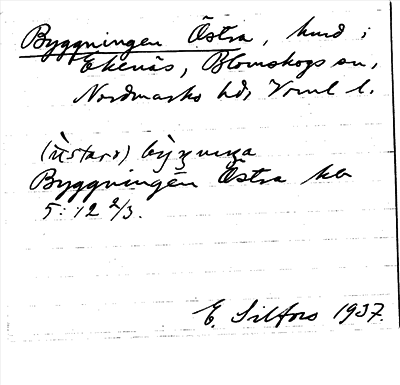 Byggningen Östra, hmd i
Ekenäs, Blomskogs sn,
Nordmarks hd, Vrml l.
Byggningen Östra hmd
5:12 2/3.
E. Silfors 1937.